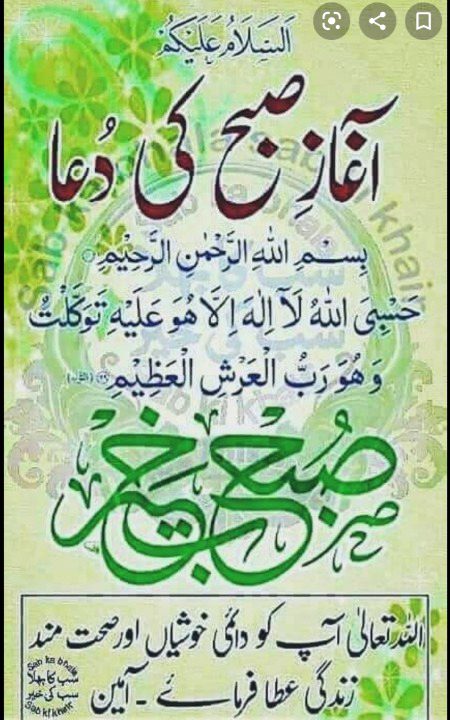 اَلسَّلَامُ عَلَیْکُمْ
آغازِ صبح کی دُعا
بِسْمِ اللهِ الرَّحْمٰنِ الرَّحِیْمِ
حَسْبِیَ اللهُ لَآ اِلٰهَ اِلَّا هُوَ عَلَیْهِ تَوَکَّلْتُ
وَهُوَ رَبُّ الْعَرْشِ الْعَظِیْمِ
صُبح بخیر
اللہ تعالیٰ آپ کو دائمی خوشیاں اور صحت مند
زندگی عطا فرمائے ۔ آمین
Sab ka bhala
سب کا بھلا
سب کی خیر
Sab ki khair